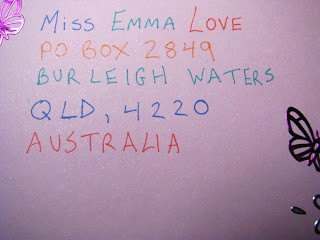 Miss Emma Love
PO BOX 2849
BURLEIGH WATERS
QLD, 4220
AUSTRALIA